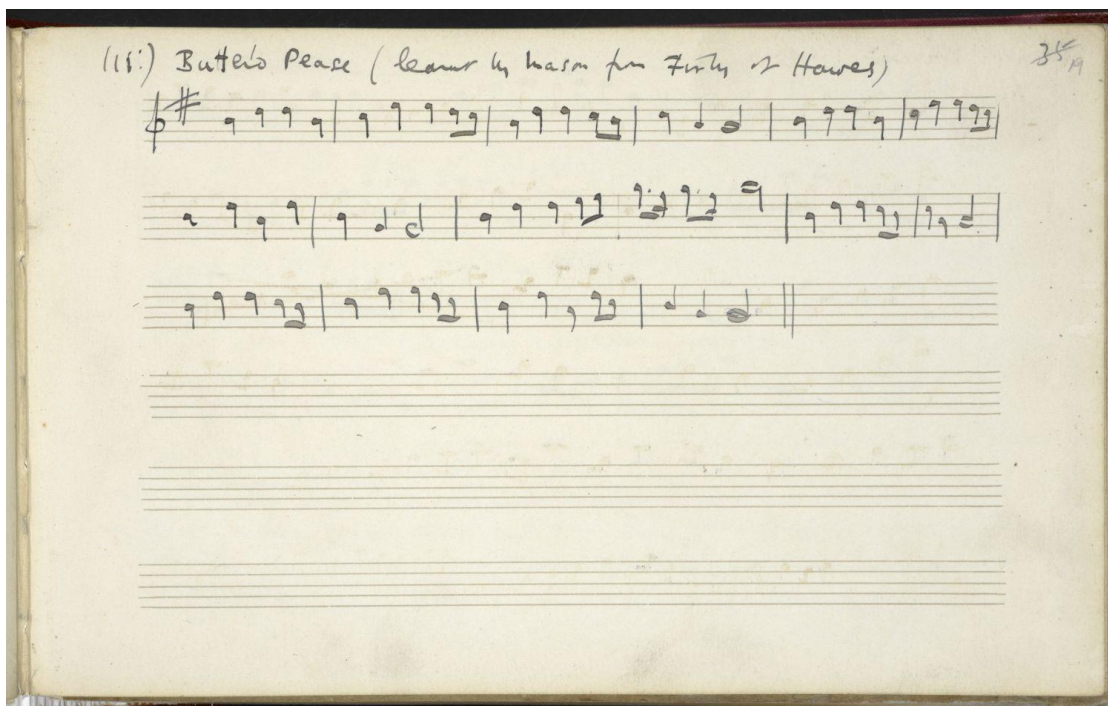 (ii:) Butter'd Pease (learnt by Mason from of Hawes)
19